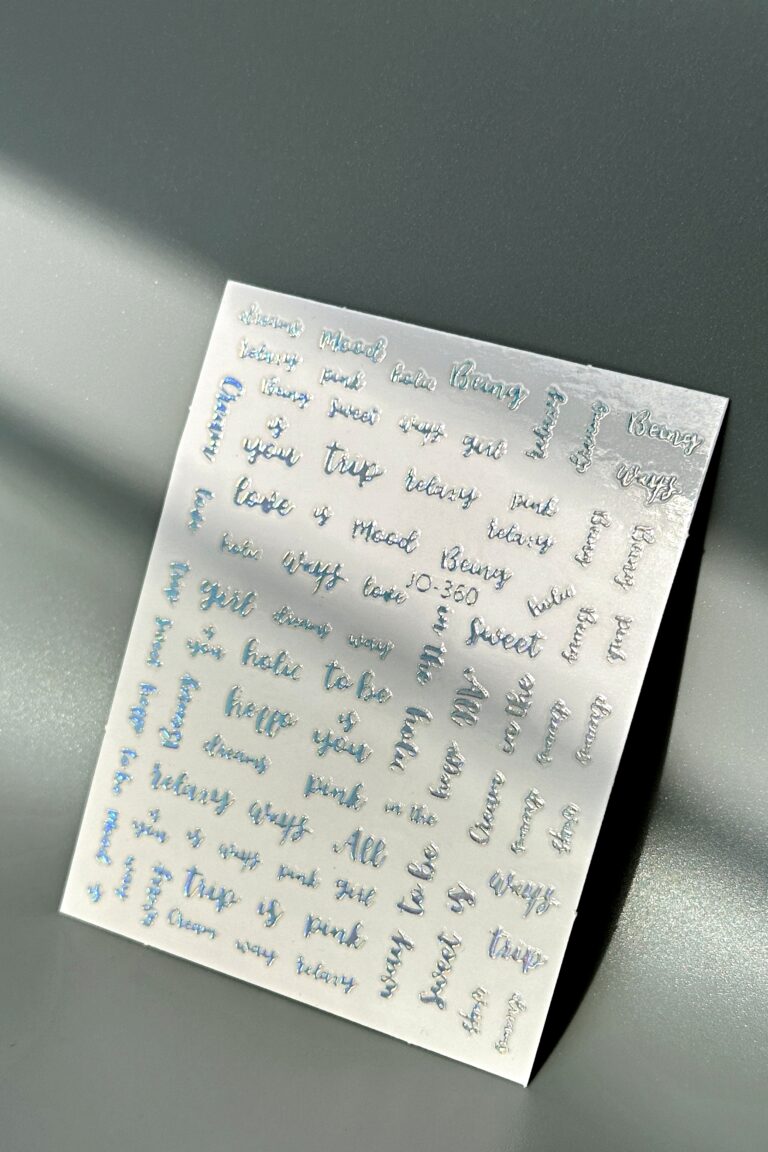 dreams Mood holic Being
relaxy pink
Being sweet ways girl relaxy dreams Being
Cream is
you trip relaxy pink ways
love is Mood relaxy
love holic ways love Being
JO-360
holic
trip girl dreams way in the sweet pink
is you holic to be All in the
sweet
happy is you holic
dreams
to be relaxy pink in the Cream
ways All
is you is ways pink girl way to be ways
Mood trip is pink sweet is trip
way Cream way relaxy
is ways dreams